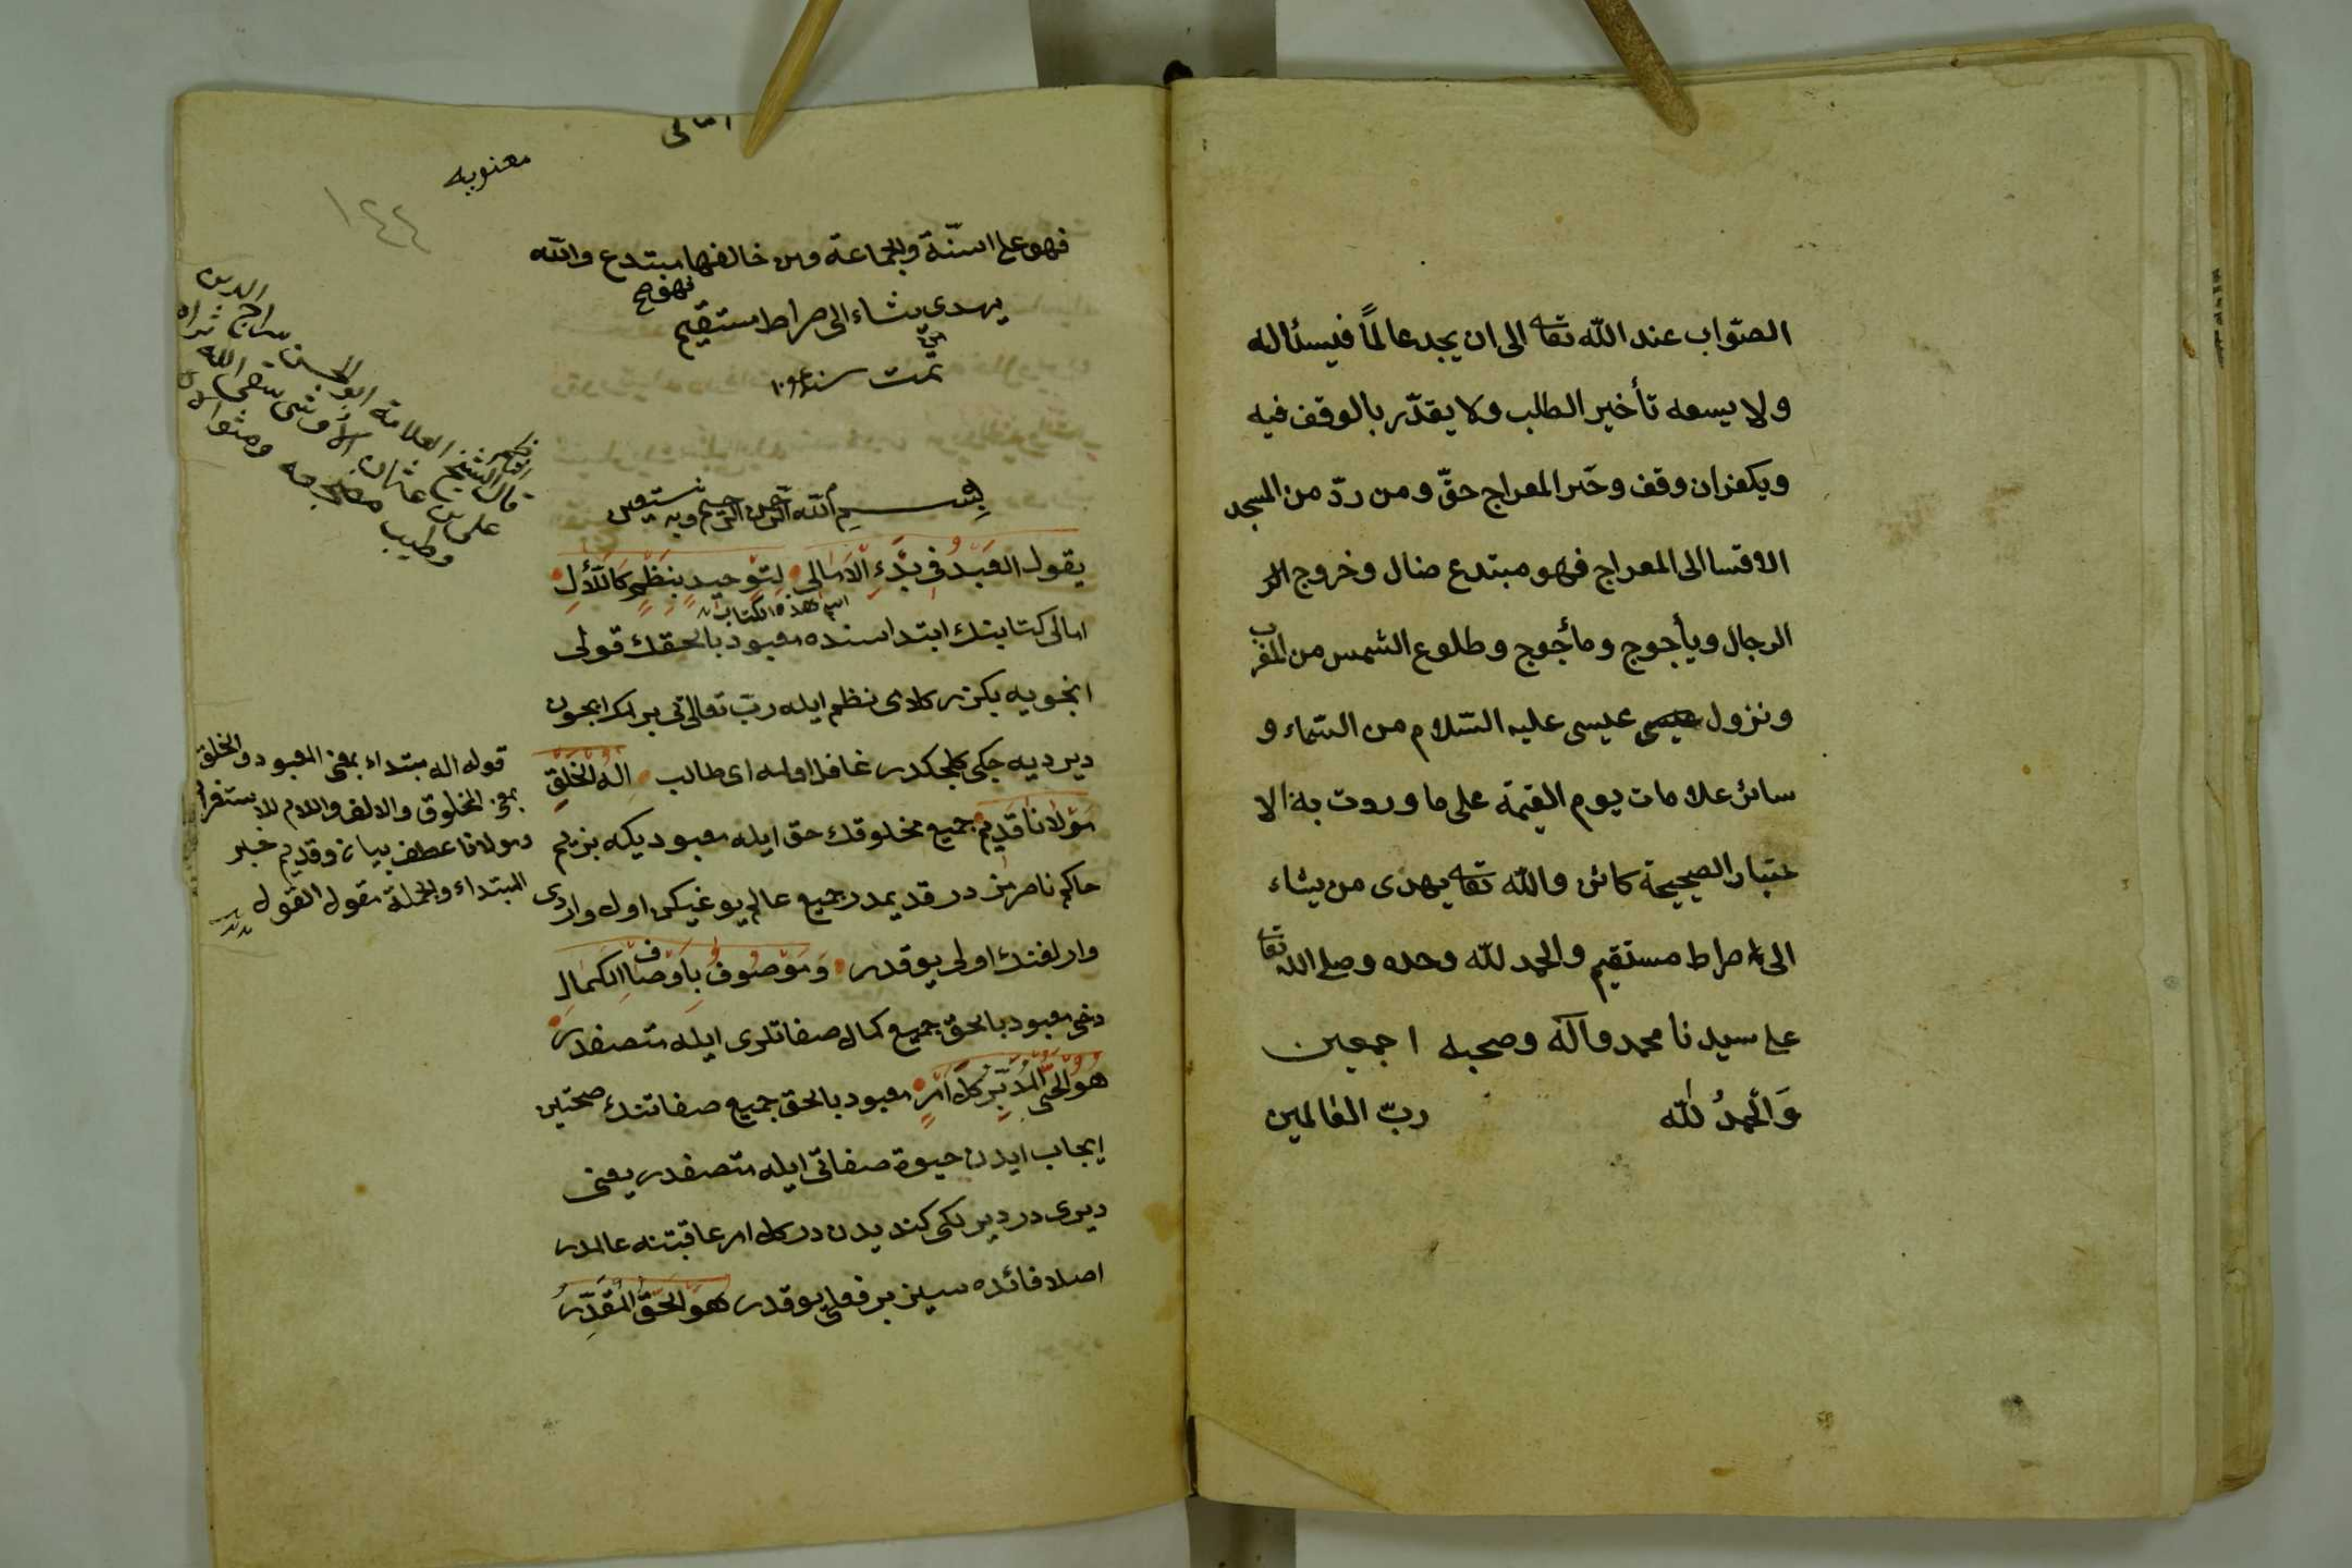 الصّواب عند الله تعا الى ان يجد عالمًا فيسئاله
ولا يسعه تأخير الطلب ولا يقدّر بالوقف فيه
ويكفر ان وقف وخبر المعراج حقّ ومن ردّ من المسجد
الاقسا الى المعراج فهو مبتدع ضال وخروج الر
الرجال ويأجوج ومأجوج وطلوع الشمس من المغرب
ونزول عيسى عليه السّلام من السّماء و
سائر علامات يوم القيمة على ما وردت به الا
خبار الصحيحة كائن والله تعا يهدى من يشاء
الى صراط مستقيم والحمد لله وحده وصلى الله تعا
على سيدنا محمد وآله وصحبه اجمعين
وَالْحمدُ للّه ربّ العالمين
امالى
معنويه
١٤٤
فهو على السنّة والجماعة ومن خالفها مبتدع والله
يهدى من يشاء الى صراط مستقيم
تمت سنة
قال الشيخ العلامة ابو الحسن سراج الدين
على بن عثمان الأوشى سقى الله ثراه
وطيب مضجعه ومثواه
بِسْمِ الله الرّحمن الرّحيم وبه نستعين
يقول العَبْدُ فى بَدْءِ الْاَمَالى لِتَوْحيدٍ بِنَظْمٍ كَاللَّألِ
اسم هذه الكتاب
امالى كتابينك ابتداسنده معبود بالحقك قولى
انجويه بكزر كلامى نظم ايله ربّ تعالى بى برلمك ايجون
دير ديه جكى كلجكدر غافل اولمه اى طالب اِلٰهُ الْخَلْقِ
مَوْلَانَا قَدِيمٌ جميع مخلوقك حق ايله معبوديكه بزيم
حاكم ناصرمز در قديمدر جميع عالم يوغيكن اول واردى
وارلغنك اولى يوقدر وَمَوْصُوفٌ بِاَوْصَافِ الْكَمَالِ
دخى معبود بالحق جميع كمال صفاتلرى ايله متصفدر
هُوَ الْحَىُّ الْمُدَبِّرُ كُلَّ اَمْرٍ معبود بالحق جميع صفاتنك صحتين
ايجاب ايدن حيوة صفاتى ايله متصفدر يعنى
ديرى در ديرلكى كنديدن در كل امر عاقبتنه عالمدر
اصلا فائده سيز بر فعلى يوقدر هُوَ الْحَقُّ الْمُقَدِّرُ
قوله اله مبتداء بمعنى المعبود والخلق
بمعنى المخلوق والالف واللام للاستغراق
ومولانا عطف بيان وقديم خبر
المبتداء والجملة مقول القول